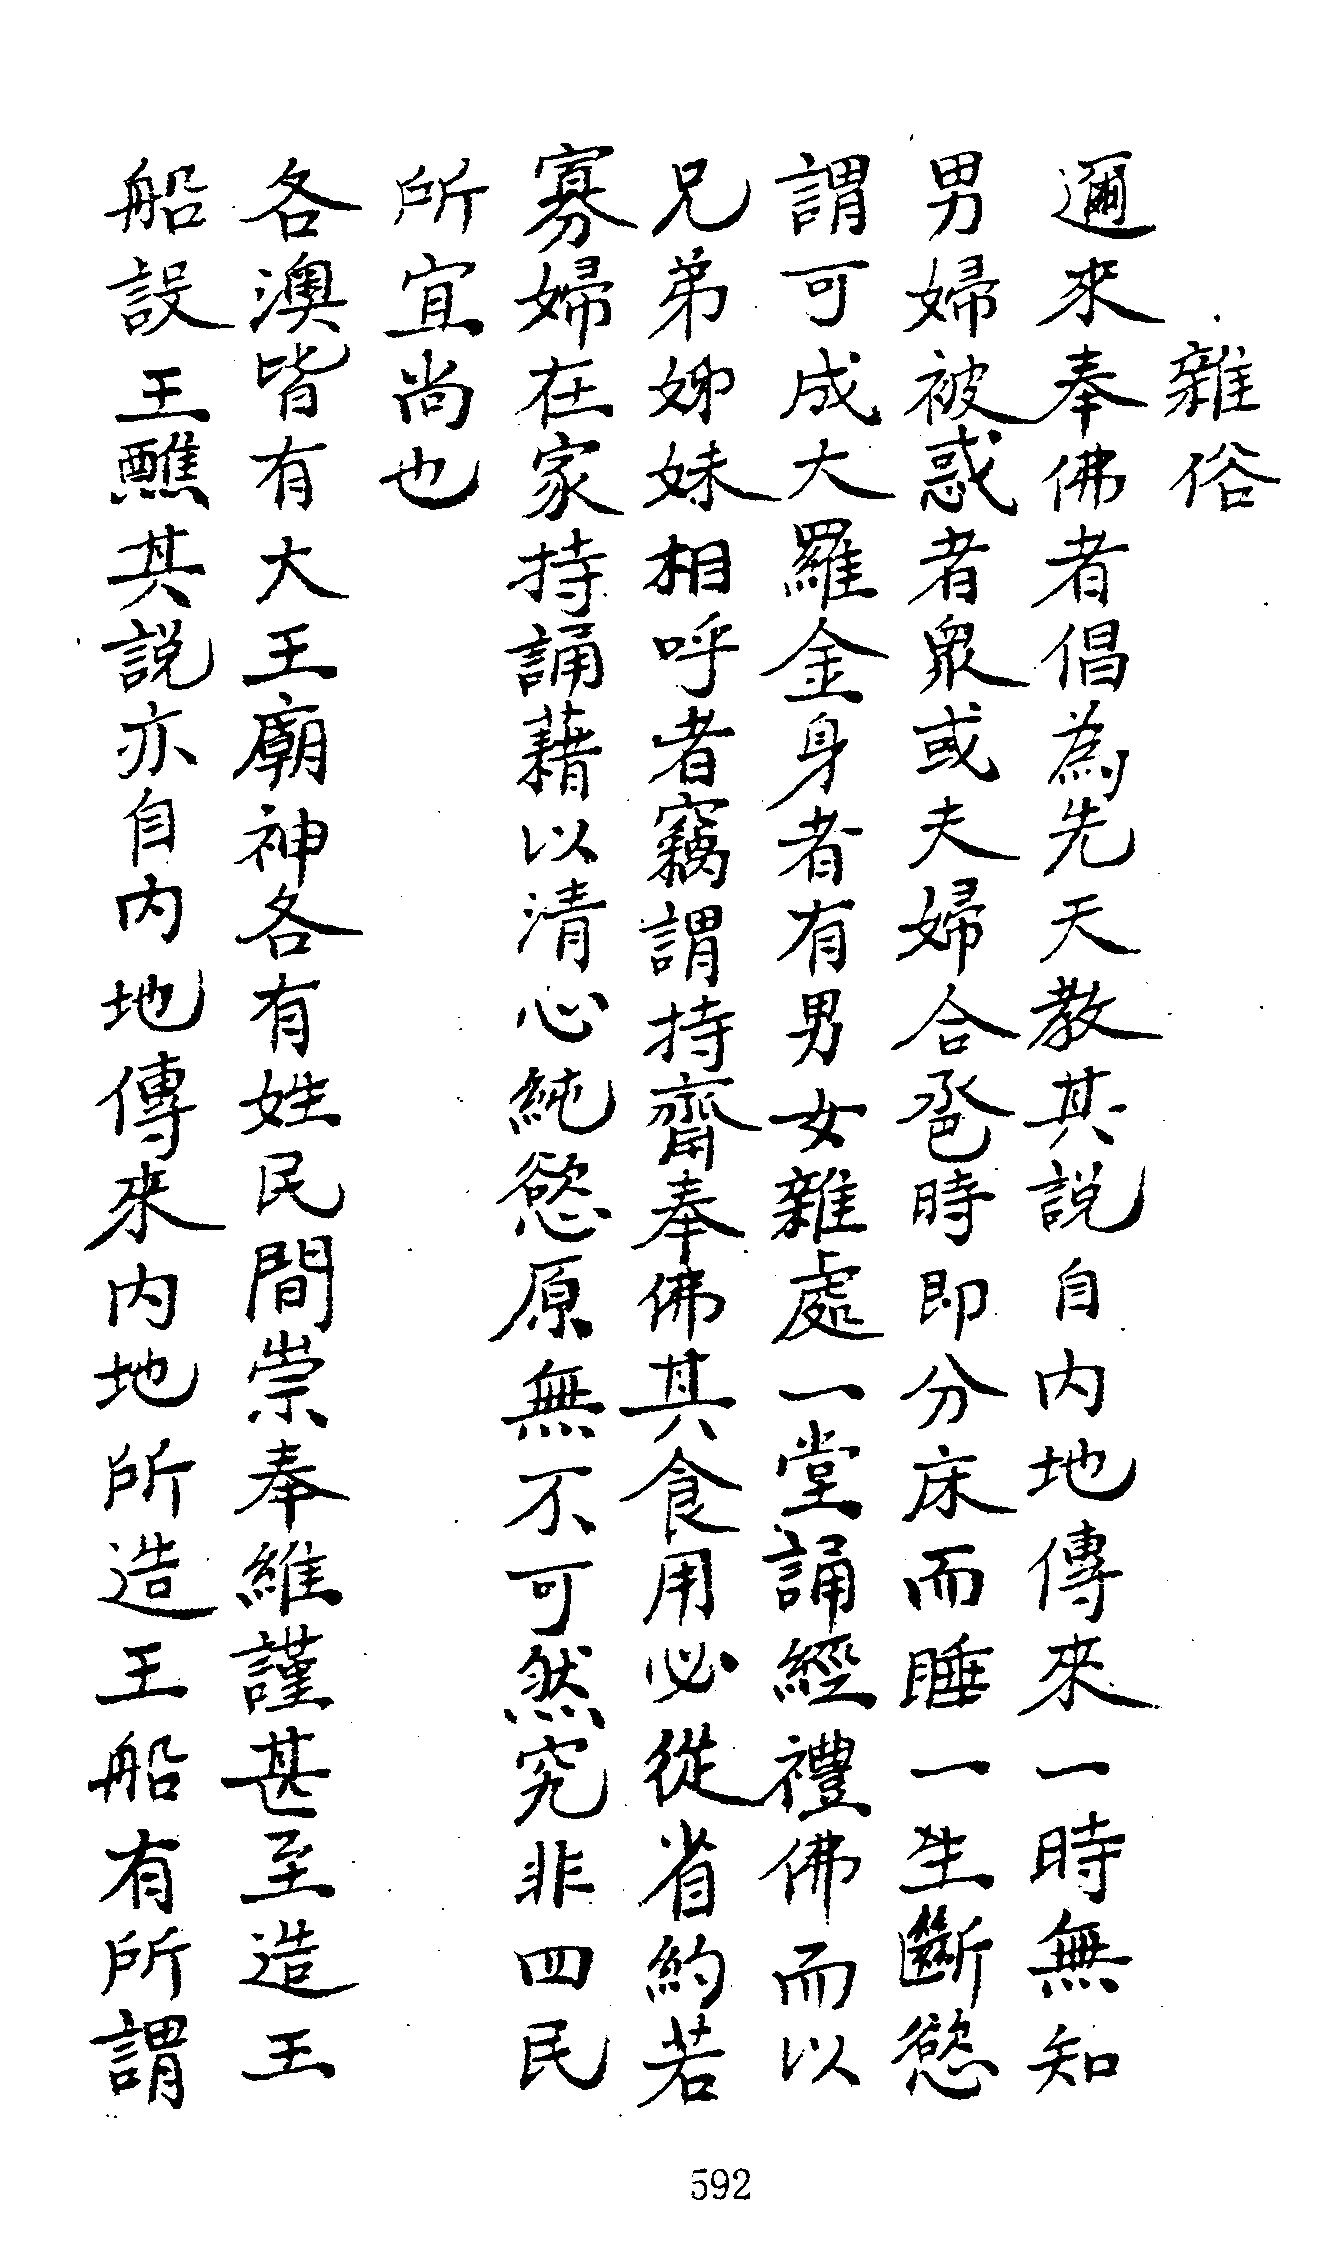 雜俗
邇來奉佛者倡為先天教其説自内地傳來一時無知
男婦被惑者衆或夫婦合卺時即分床而睡一生斷慾
謂可成大羅金身者有男女雜處一堂誦經禮佛而以
兄弟姊妹相呼者竊謂持齋奉佛其食用必從省約若
寡婦在家持誦藉以清心純慾原無不可然究非四民
所宜尚也
各澳皆有大王廟神各有姓民間崇奉維謹甚至造王
船設王醮其説亦自内地傳來内地所造王船有所謂
592